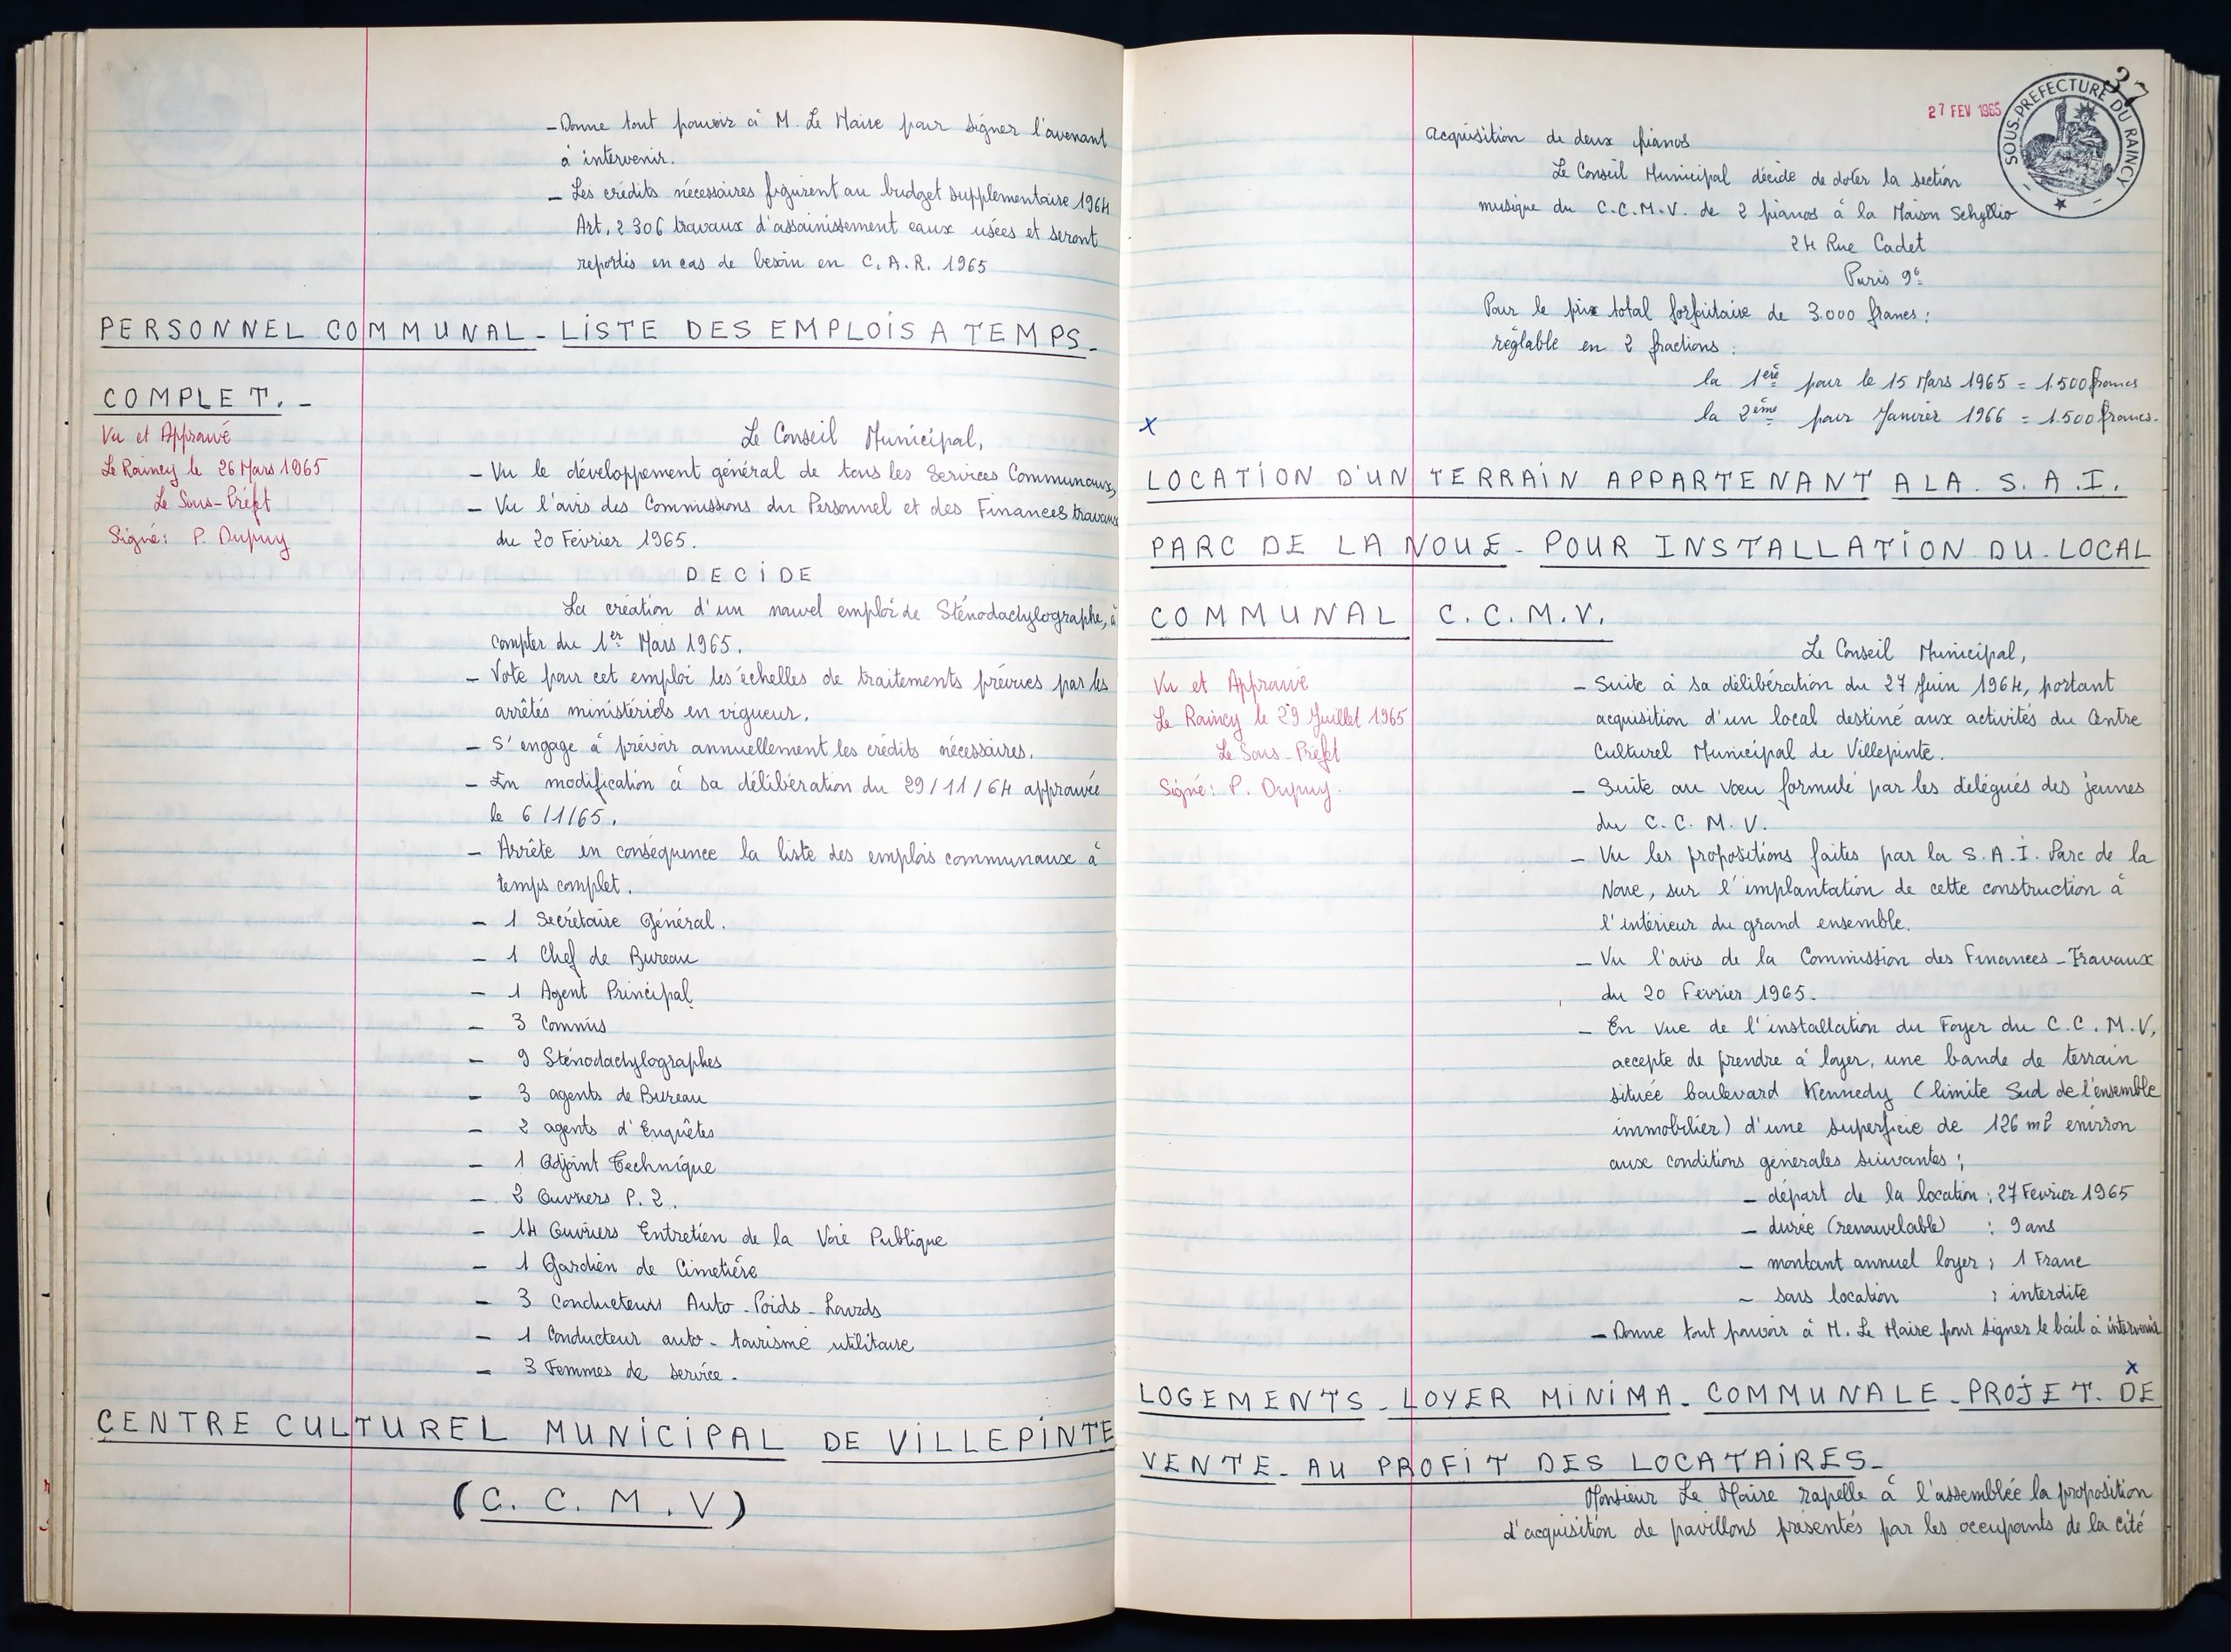 - Donne tout pouvoir à M. Le Maire pour signer l'avenant
à intervenir.
- Les crédits nécessaires figurent au budget supplémentaire 1964
Art. 2306 travaux d'assainissement eaux usées et seront
reportés en cas de besoin en C.A.R. 1965
PERSONNEL COMMUNAL - LISTE DES EMPLOIS A TEMPS -
COMPLET. -
Vu et Approuvé
Le Raincy le 26 Mars 1965
Le Sous-Préfet
Signé: P. Dupuy
Le Conseil Municipal,
- Vu le développement général de tous les Services Communaux,
- Vu l'avis des Commissions du Personnel et des Finances travaux
du 20 Février 1965.
DECIDE
La création d'un nouvel emploi de Sténodactylographe, à
compter du 1er Mars 1965.
- Vote pour cet emploi les échelles de traitements prévues par les
arrêtés ministériels en vigueur.
- S'engage à prévoir annuellement les crédits nécessaires.
- En modification à sa délibération du 29/11/64 approuvée
le 6/1/65.
- Arrête en conséquence la liste des emplois communaux à
temps complet.
- 1 Secrétaire Général.
- 1 Chef de Bureau
- 1 Agent Principal
- 3 Commis
- 9 Sténodactylographes
- 3 agents de Bureau
- 2 agents d'Enquêtes
- 1 Adjoint Technique
- 2 Ouvriers P. 2.
- 14 Ouvriers Entretien de la Voie Publique
- 1 Gardien de Cimetière
- 3 Conducteurs Auto-Poids-Lourds
- 1 Conducteur auto-tourisme utilitaire
- 3 Femmes de service.
CENTRE CULTUREL MUNICIPAL DE VILLEPINTE
(C. C. M. V)
37
27 FEV 1965
SOUS-PREFECTURE DU RAINCY
acquisition de deux pianos
Le Conseil Municipal décide de doter la section
musique du C.C.M.V. de 2 pianos à la Maison Schyllio
24 Rue Cadet
Paris 9e
Pour le prix total forfaitaire de 3.000 francs;
réglable en 2 fractions :
la 1ère pour le 15 Mars 1965 = 1.500 francs
la 2ème pour Janvier 1966 = 1.500 francs.
x
LOCATION D'UN TERRAIN APPARTENANT A LA. S. A. I.
PARC DE LA NOUE - POUR INSTALLATION DU LOCAL
COMMUNAL C. C. M. V.
Vu et Approuvé
Le Raincy le 29 Juillet 1965
Le Sous-Préfet
Signé: P. Dupuy.
Le Conseil Municipal,
- Suite à sa délibération du 27 Juin 1964, portant
acquisition d'un local destiné aux activités du Centre
Culturel Municipal de Villepinte.
- Suite au vœu formulé par les délégués des jeunes
du C. C. M. V.
- Vu les propositions faites par la S. A. I. Parc de la
Noue, sur l'implantation de cette construction à
l'intérieur du grand ensemble.
- Vu l'avis de la Commission des Finances-Travaux
du 20 Février 1965.
- En vue de l'installation du Foyer du C.C.M.V,
accepte de prendre à loyer, une bande de terrain
située boulevard Kennedy (limite Sud de l'ensemble
immobilier) d'une superficie de 126 m2 environ
aux conditions générales suivantes;
- départ de la location : 27 Février 1965
- durée (renouvelable) : 9 ans
- montant annuel loyer : 1 Franc
- sous location : interdite
- Donne tout pouvoir à M. Le Maire pour signer le bail à intervenir
x
LOGEMENTS - LOYER MINIMA - COMMUNALE - PROJET. DE
VENTE - AU PROFIT DES LOCATAIRES -
Monsieur Le Maire rapelle à l'assemblée la proposition
d'acquisition de pavillons présentés par les occupants de la cité